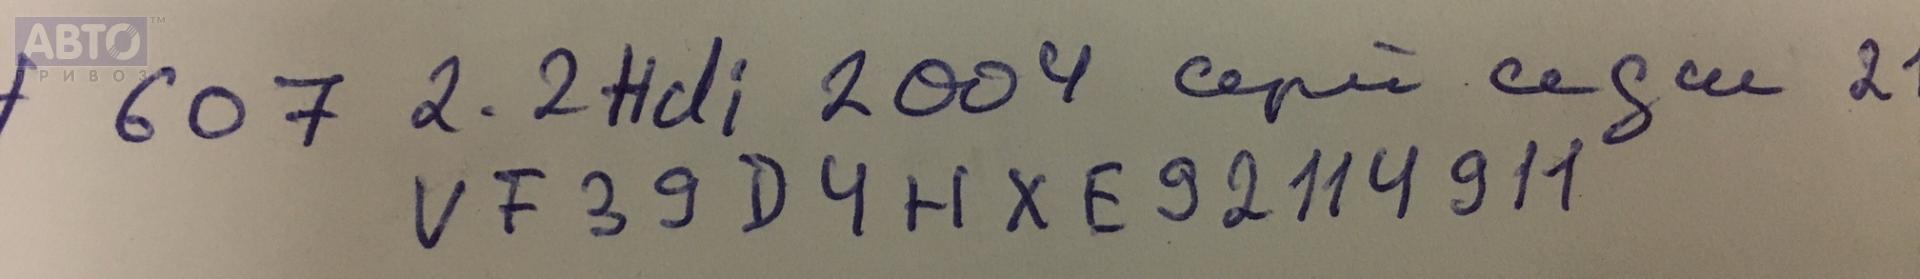 АВТО™
ПРИВОЗ
607 2.2Hdi 2004 серый седан 21
VF39D4HXE92114911